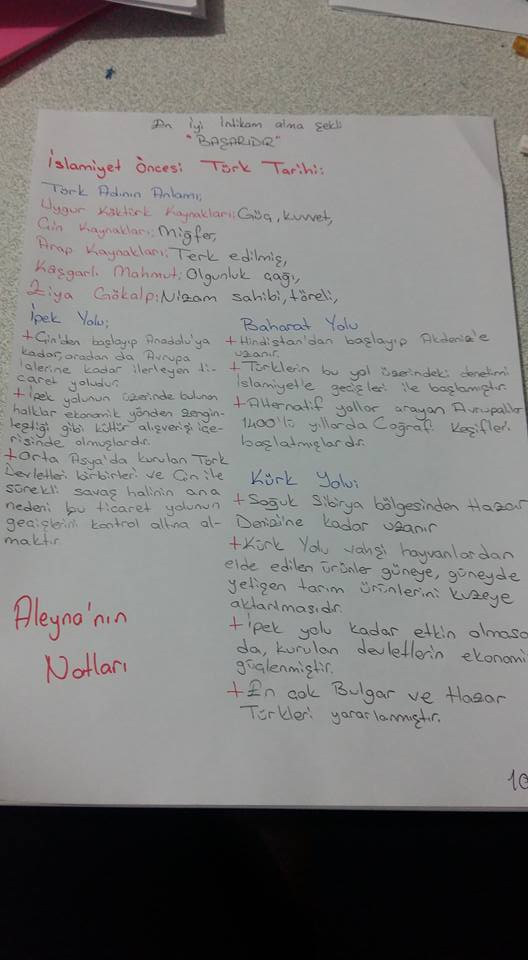 En iyi İntikam alma şekli
"BAŞARIDIR"
İslamiyet Öncesi Türk Tarihi:
Türk Adının Anlamı;
Uygur Köktürk Kaynakları; Güç, kuvvet,
Çin Kaynakları; Miğfer,
Arap Kaynakları; Terk edilmiş,
Kaşgarlı Mahmut; Olgunluk çağı,
Ziya Gökalp; Nizam sahibi, töreli,
İpek Yolu;
+Çin'den başlayıp Anadolu'ya
kadar, oradan da Avrupa
içlerine kadar ilerleyen ti-
caret yoludur.
+İpek yolunun üzerinde bulunan
halklar ekonomik yönden zengin-
leştiği gibi kültür alışverişi içe-
risinde olmuşlardır.
+Orta Asya'da kurulan Türk
Devletleri birbirleri ve Çin ile
sürekli savaş halinin ana
nedeni bu ticaret yolunun
geçişlerini kontrol altına al-
maktır.
Aleyna'nın
Notları
Baharat Yolu
+Hindistan'dan başlayıp Akdeniz'e
uzanır.
+Türklerin bu yol üzerindeki denetimi
İslamiyet'e geçişleri ile başlamıştır.
+Alternatif yollar arayan Avrupalılar
1400'lü yıllarda Coğrafi Keşifleri
başlatmışlardır.
Kürk Yolu;
+Soğuk Sibirya bölgesinden Hazar
Denizi'ne kadar uzanır
+Kürk Yolu vahşi hayvanlardan
elde edilen ürünler güneye, güneyde
yetişen tarım ürünlerini kuzeye
aktarılmasıdır.
+İpek yolu kadar etkin olmasa
da, kurulan devletlerin ekonomi
güçlenmiştir.
+En çok Bulgar ve Hazar
Türkleri yararlanmıştır.
10